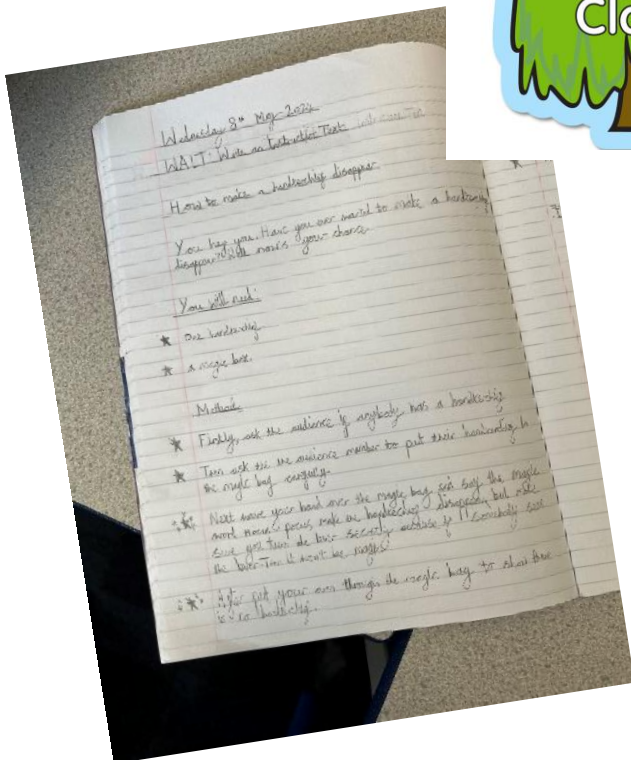 Clo
Wednesday 8th May 2024
WALT: Write an Instruction Text
How to make a handkerchif disappear
You hey you. Have you ever wanted to make a
disappear? Well now's your chance
You will need:
One handkerchif
a magic bag.
Method
Firstly, ask the audience if anybody has a handkerchif
Then ask the audience member to put their in
the magic bag carefully.
Next wave your hand over the magic bag and say the magic
word Hocus pocus make the disappear but make
sure you turn the lever because if somebody sees
the lever Then it won't be magic
After put your arm through the magic bag to show there
is no handkerchif.